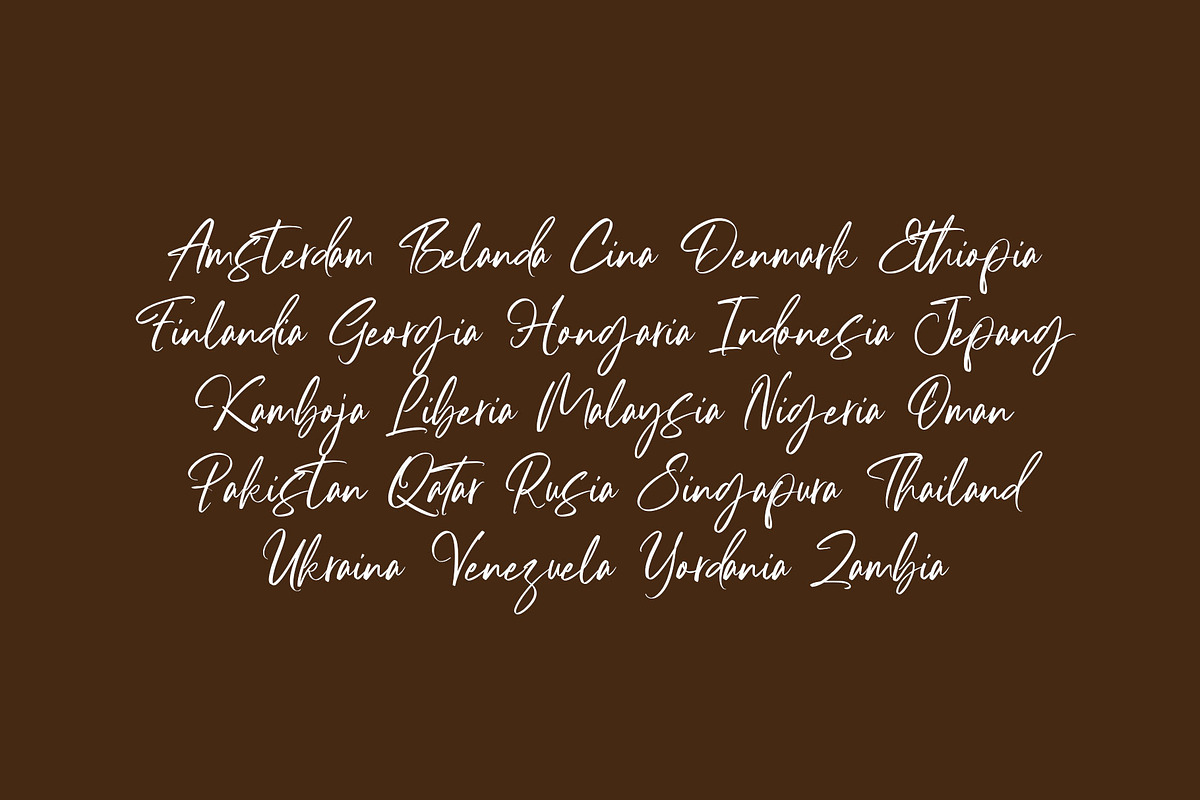 Amsterdam Belanda Cina Denmark Ethiopia
Finlandia Georgia Hongaria Indonesia Jepang
Kamboja Liberia Malaysia Nigeria Oman
Pakistan Qatar Rusia Singapura Thailand
Ukraina Venezuela Yordania Zambia